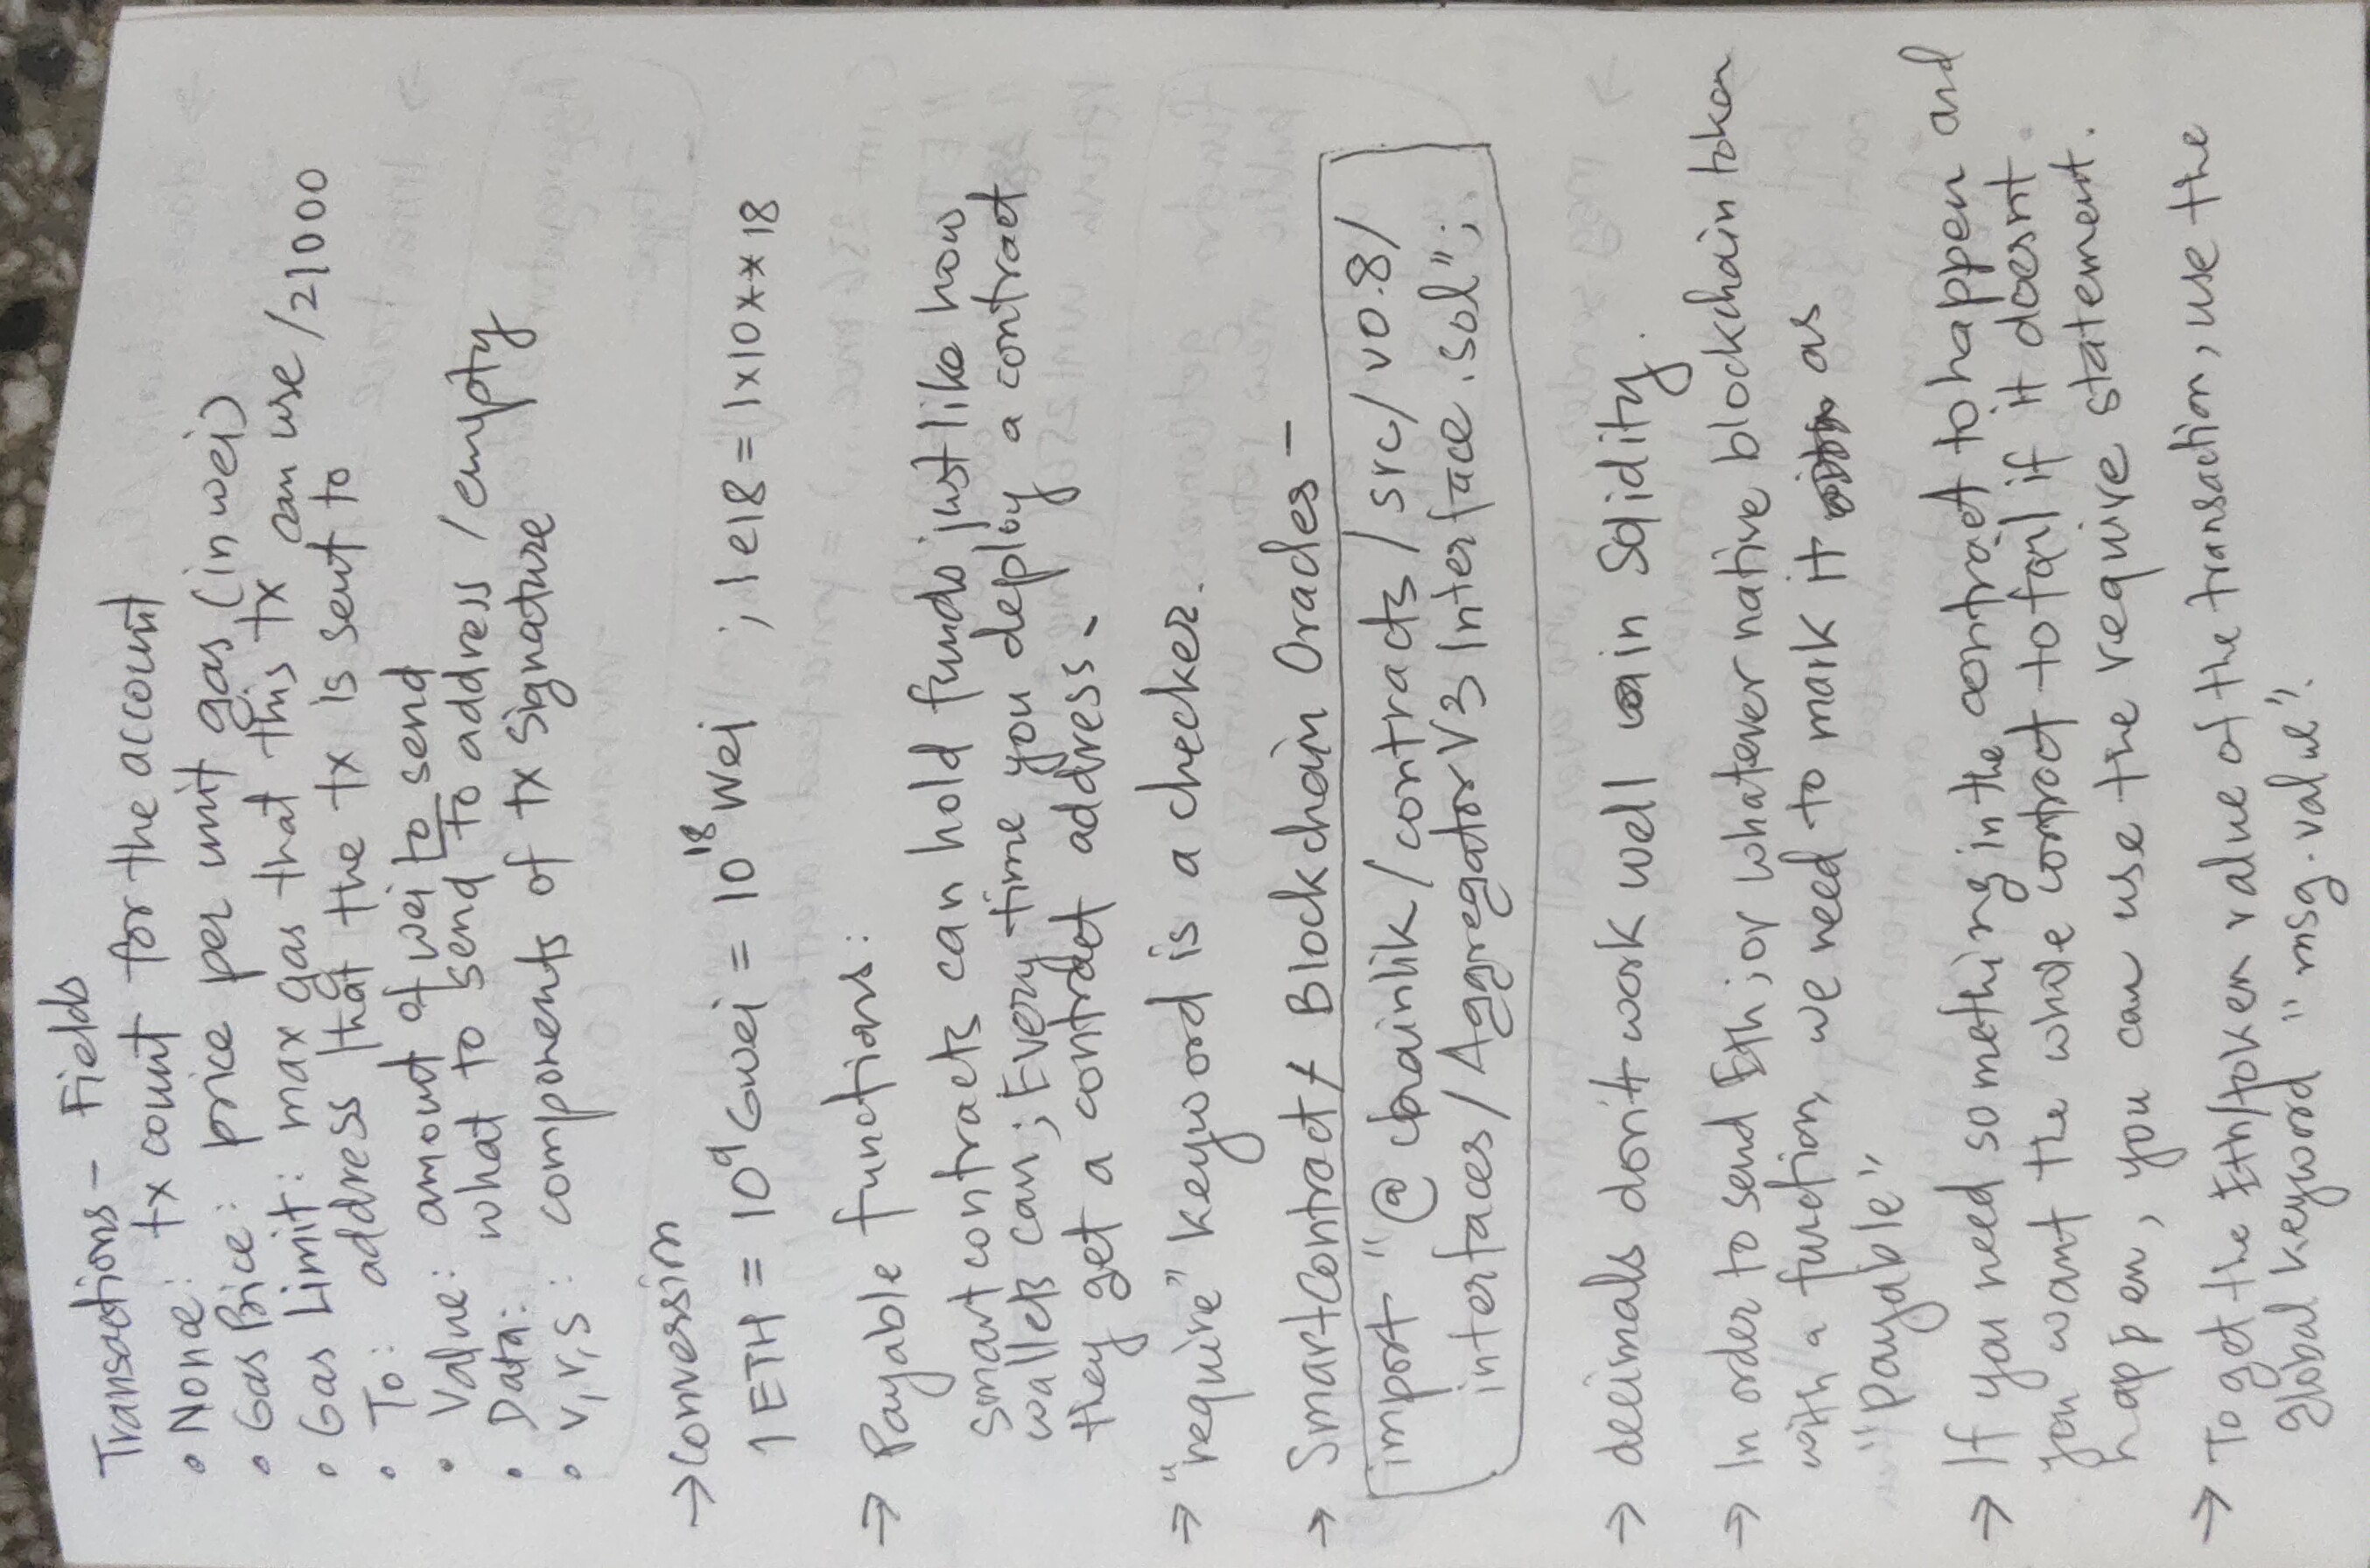 Transactions - Fields
• Nonce: tx count for the account
• Gas Price: price per unit gas (in wei)
• Gas Limit: max gas that this tx can use /21000
• To: address that the tx is sent to
• Value: amount of wei to send
• Data: what to send To address / empty
• v,r,s: components of tx Signature
→ Conversion
1 ETH = 10⁹ Gwei = 10¹⁸ Wei ; 1e18 = 1x10**18
→ Payable functions:
smart contracts can hold funds just like how
wallets can; Every time you deploy a contract
they get a contract address.
→ "require" keyword is a checker.
→ SmartContract / Blockchain Oracles -
import "@chainlik/contracts/src/v0.8/
interfaces/AggregatorV3Interface.sol";
→ decimals don't work well in Solidity.
→ In order to send Eth; or whatever native blockchain token
with a function, we need to mark it as
"Payable"
→ If you need something in the contract to happen and
you want the whole contract to fail if it doesnt
happen, you can use the require statement.
→ To get the Eth/token value of the transaction, use the
global keyword "msg.value".